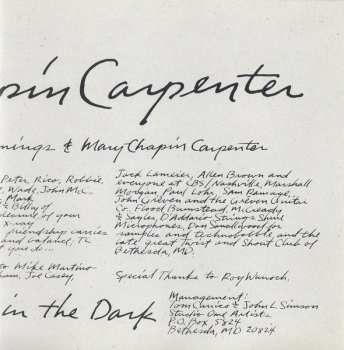 pin Carpenter
nings & Mary Chapin Carpenter
Peter, Rico, Robbie,
Wade, John Mc-
Mark
& Billy of
of your
x-way
friendship carries
and balance, TL
t you do...
Jack Lameier, Allen Brown and
everyone at CBS/Nashville, Marshall
Morgan, Paul Lohr, Sam Ramage,
John Greven and the Greven Guitar
Co. Flood, Bumstead, McCready
& Sayles, D'Addario Strings, Shure
Microphones, Don Smallwood for
samples and technobabble, and the
late great Twist and Shout Club of
Bethesda, MD.
to Mike Martino
ham, Joe Casey,
Special Thanks to Roy Wunsch.
in the Dark
Management:
Tom Carrico & John L. Simson
Studio One Artists
P.O. Box 5824
Bethesda, MD 20824